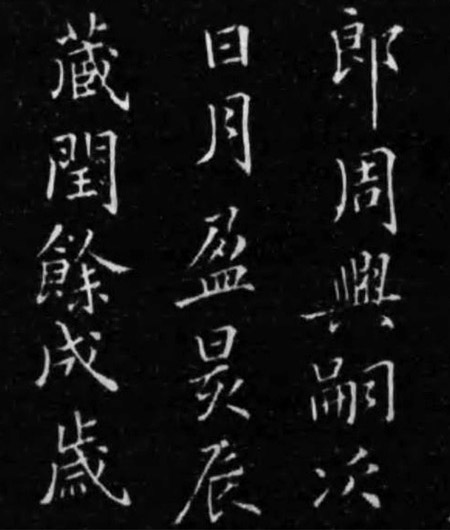 郎周興嗣次
日月盈昃辰
藏閏餘成歲